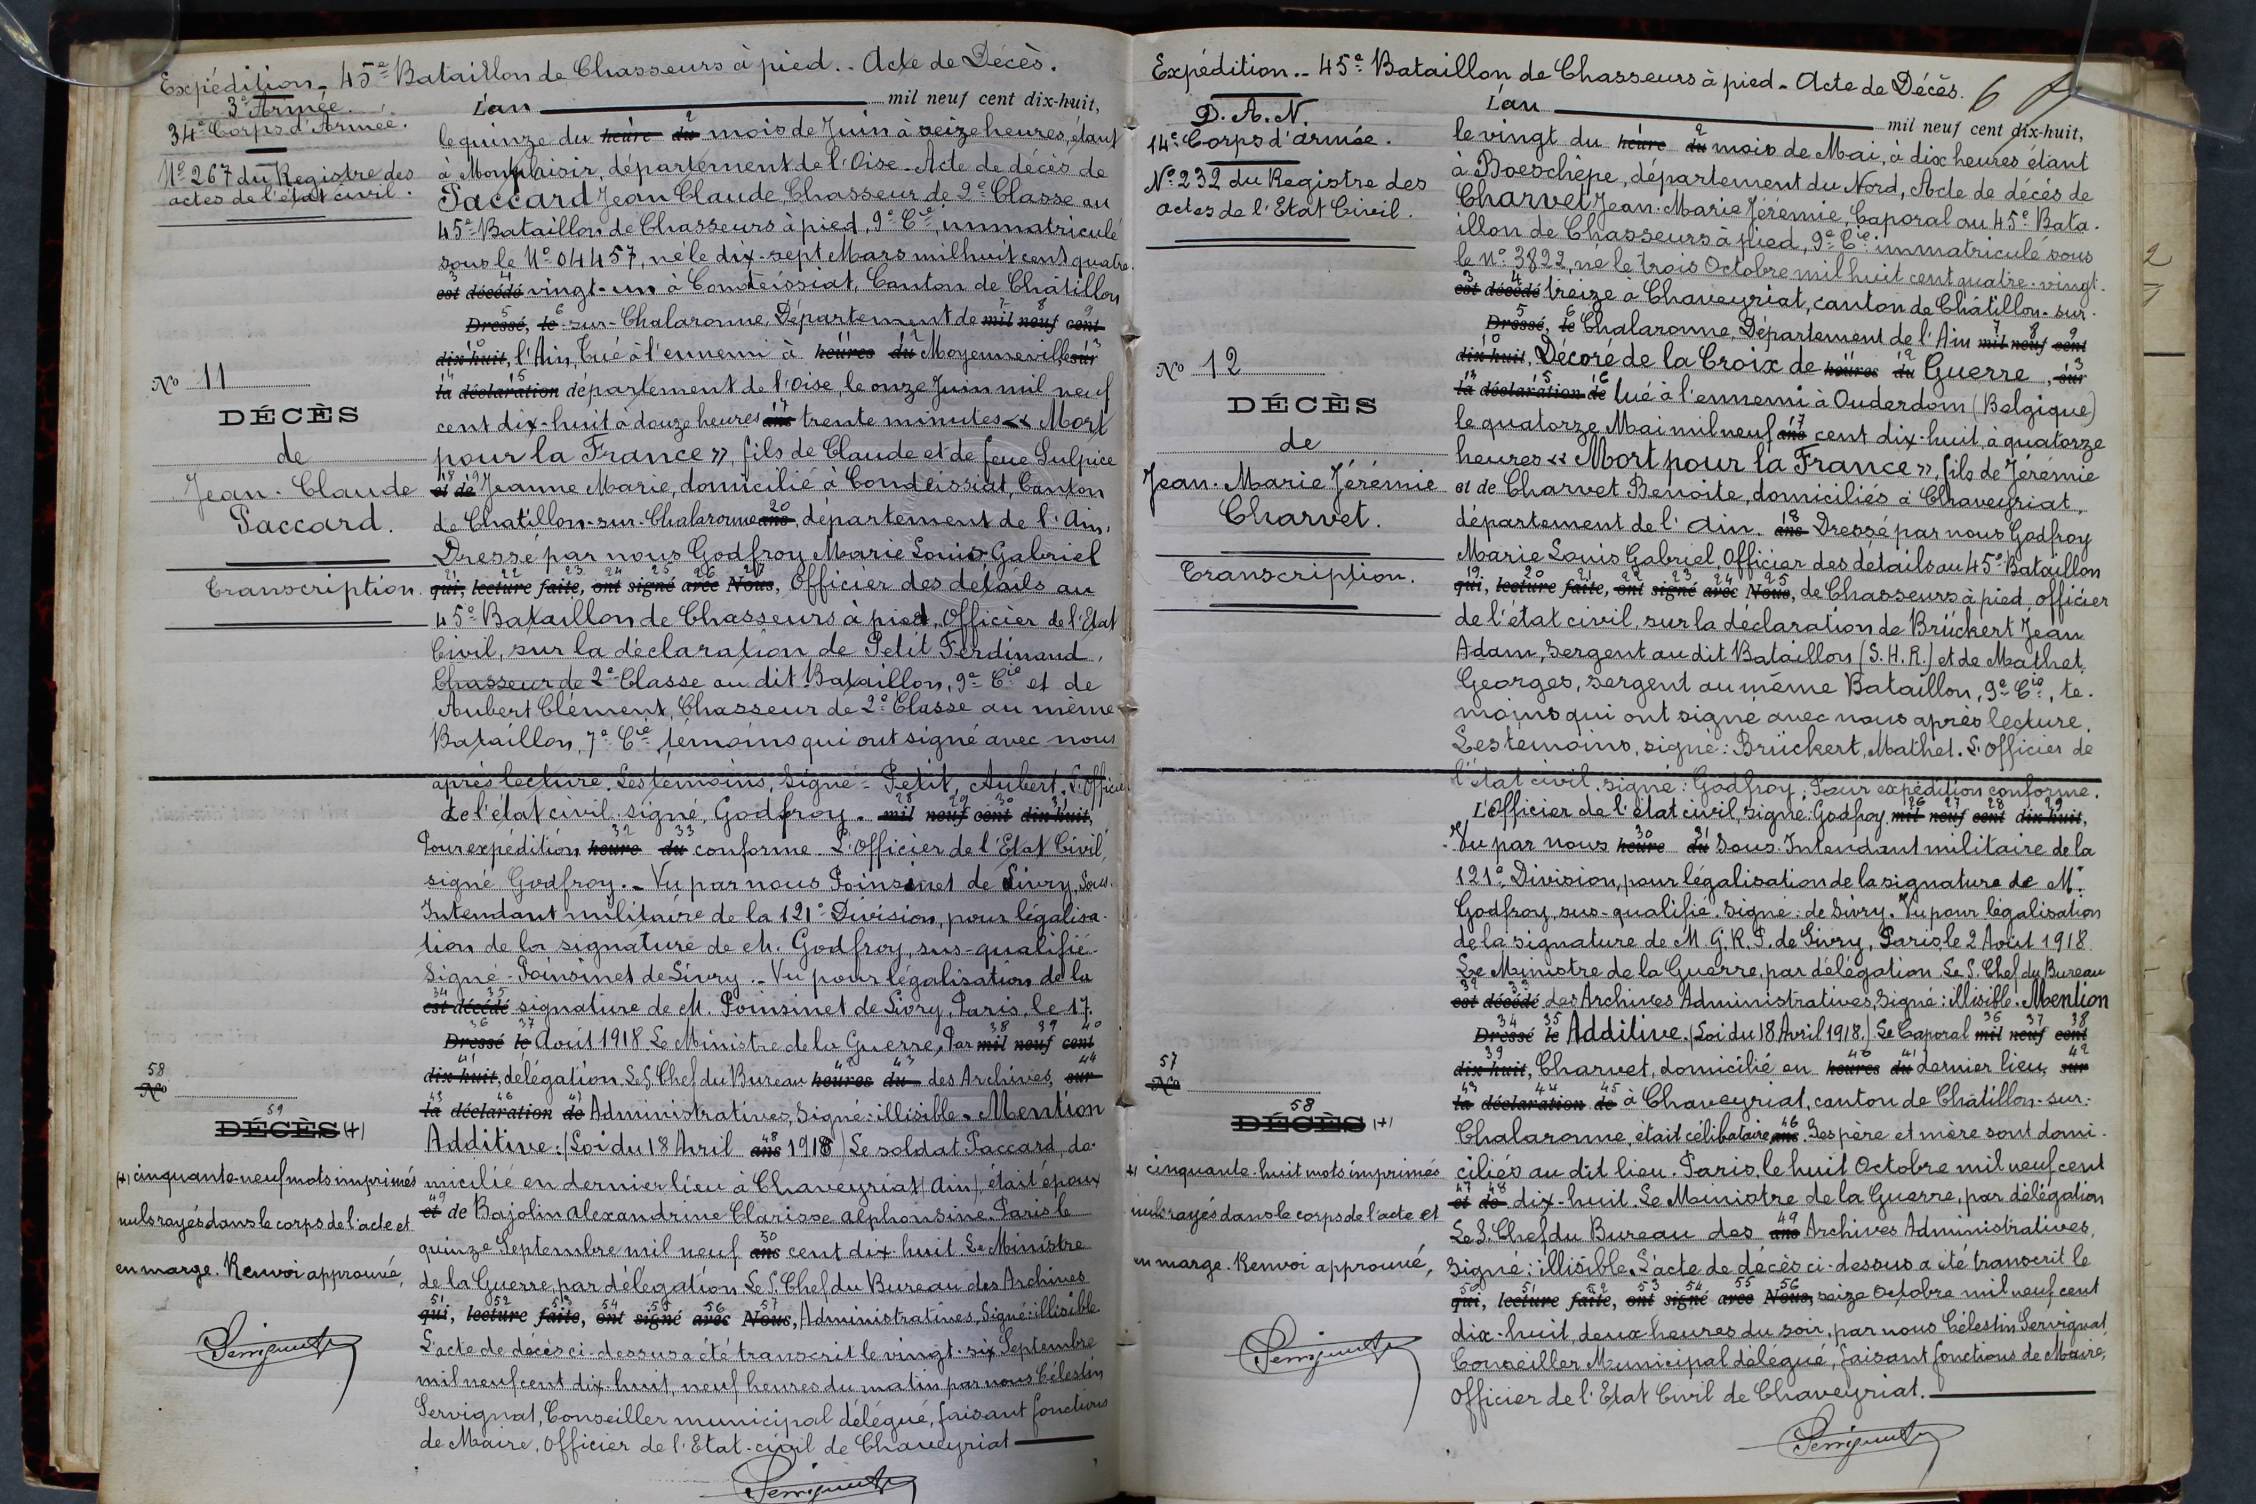 Expédition. 45e Bataillon de Chasseurs à pied. - Acte de Décès.
3e Armée.
34e Corps d'Armée.
No 267 du Registre des
actes de l'état civil.
No 11
DÉCÈS
de
Jean-Claude
Paccard.
Transcription
L'an mil neuf cent dix-huit,
le quinze du heure du mois de Juin à seize heures, étant
à Monplaisir, département de l'Oise. Acte de décès de
Paccard Jean Claude, Chasseur de 2e Classe au
45e Bataillon de Chasseurs à pied, 9e Cie, immatriculé
sous le No 04457, né le dix-sept Mars mil huit cent quatre-
est décédé vingt-un à Condeissiat, Canton de Châtillon
Dressé, le -sur-Chalaronne, Département de mil neuf cent
dix-huit, l'Ain, Tué à l'ennemi à heures du Moyenneville sur
la déclaration département de l'Oise, le onze Juin mil neuf
cent dix-huit à douze heures ans trente minutes « Mort
pour la France », fils de Claude et de feue Sulpice
et de Jeanne Marie, domicilié à Condeissiat, Canton
de Chatillon-sur-Chalaronne ans, département de l'Ain,
Dressé par nous Godfroy Marie Louis Gabriel
qui, lecture faite, ont signé avec Nous, Officier des détails au
45e Bataillon de Chasseurs à pied, Officier de l'Etat
Civil, sur la déclaration de Petit Ferdinand,
Chasseur de 2e Classe au dit Bataillon, 9e Cie et de
Aubert Clément, Chasseur de 2e Classe au même
Bataillon, 7e Cie, témoins qui ont signé avec nous
après lecture. Les témoins, Signé - Petit, Aubert. L'Officier
de l'état civil, signé, Godfroy. mil neuf cent dix-huit,
Pour expédition heure du conforme. L'Officier de l'Etat Civil,
signé Godfroy. - Vu par nous Poinsinet de Sivry, Sous-
Intendant militaire de la 121e Division, pour légalisa-
tion de la signature de M. Godfroy, sus-qualifié
Signé - Poinsinet de Sivry. - Vu pour légalisation de la
est décédé signature de M. Poinsinet de Sivry, Paris, le 17
Dressé le Août 1918 Le Ministre de la Guerre, Par mil neuf cent
dix-huit, délégation Le S. Chef du Bureau heures du des Archives, sur
la déclaration de Administratives, Signé: illisible. Mention
Additive: (Loi du 18 Avril ans 1918) Le soldat Paccard, do-
micilié en dernier lieu à Chaveyriat (Ain), était époux
et de Bajolin Alexandrine Clarisse Alphonsine. Paris le
quinze Septembre mil neuf ans cent dix-huit. Le Ministre
de la Guerre, par délégation Le S. Chef du Bureau des Archives
qui, lecture faite, ont signé avec Nous, Administratives, Signé: illisible
L'acte de décès ci-dessus a été transcrit le vingt-six Septembre
mil neuf cent dix-huit, neuf heures du matin par nous Célestin
Servignat, Conseiller municipal délégué, faisant fonctions
de Maire, Officier de l'Etat-civil de Chaveyriat
Servignat
58
No
59
DÉCÈS (+)
(+) cinquante-neuf mots imprimés
nuls rayés dans le corps de l'acte et
en marge. Renvoi approuvé,
Servignat
Expédition. - 45e Bataillon de Chasseurs à pied. Acte de Décès. 6
D.A.N.
14e Corps d'armée.
No 232 du Registre des
actes de l'Etat Civil.
No 12
DÉCÈS
de
Jean-Marie Jérémie
Charvet.
Transcription.
L'an mil neuf cent dix-huit,
le vingt du heure du mois de Mai, à dix heures étant
à Boeschèpe, département du Nord, Acte de décès de
Charvet Jean-Marie Jérémie, Caporal au 45e Bata-
illon de Chasseurs à pied, 9e Cie immatriculé sous
le no 3822, né le trois Octobre mil huit cent quatre-vingt-
est décédé treize à Chaveyriat, canton de Châtillon-sur-
Dressé, le Chalaronne, Département de l'Ain mil neuf cent
dix-huit, Décoré de la Croix de heures du Guerre, sur
la déclaration de tué à l'ennemi à Ouderdom (Belgique)
le quatorze Mai mil neuf ans cent dix-huit, à quatorze
heures « Mort pour la France », fils de Jérémie
et de Charvet Benoite, domiciliés à Chaveyriat,
département de l'Ain. ans Dressé par nous Godfroy
Marie Louis Gabriel, Officier des détails au 45e Bataillon
qui, lecture faite, ont signé avec Nous, de Chasseurs à pied, officier
de l'état civil, sur la déclaration de Brückert Jean
Adam, Sergent au dit Bataillon (S.H.R.) et de Mathet
Georges, sergent au même Bataillon, 9e Cie, té-
moins qui ont signé avec nous après lecture.
Les témoins, signé: Brückert, Mathet. L'officier de
l'état civil, signé: Godfroy; Pour expédition conforme.
L'Officier de l'état civil, signé: Godfroy, mil neuf cent dix-huit,
Vu par nous heure du Sous-Intendant militaire de la
121e Division, pour légalisation de la signature de M.
Godfroy, sus-qualifié. Signé: de Sivry. Vu pour légalisation
de la signature de M. G.R.P. de Sivry, Paris, le 2 Août 1918
Le Ministre de la Guerre, par délégation Le S. Chef du Bureau
est décédé des Archives Administratives, Signé: illisible. Mention
Dressé le Additive. (Loi du 18 Avril 1918.) Le Caporal mil neuf cent
dix-huit, Charvet, domicilié en heures du dernier lieu, sur
la déclaration de à Chaveyriat, canton de Châtillon-sur-
Chalaronne, était célibataire ans. Ses père et mère sont domi-
ciliés au dit lieu. Paris, le huit Octobre mil neuf cent
et de dix-huit. Le Ministre de la Guerre, par délégation
Le S. Chef du Bureau des ans Archives Administratives,
Signé: illisible. L'acte de décès ci-dessus a été transcrit le
qui, lecture faite, ont signé avec Nous, seize Octobre mil neuf cent
dix-huit, deux heures du soir, par nous Célestin Servignat,
Conseiller Municipal délégué, faisant fonctions de Maire,
Officier de l'Etat Civil de Chaveyriat.
Servignat
57
No
58
DÉCÈS (+)
(+) cinquante-huit mots imprimés
nuls rayés dans le corps de l'acte et
en marge. Renvoi approuvé,
Servignat